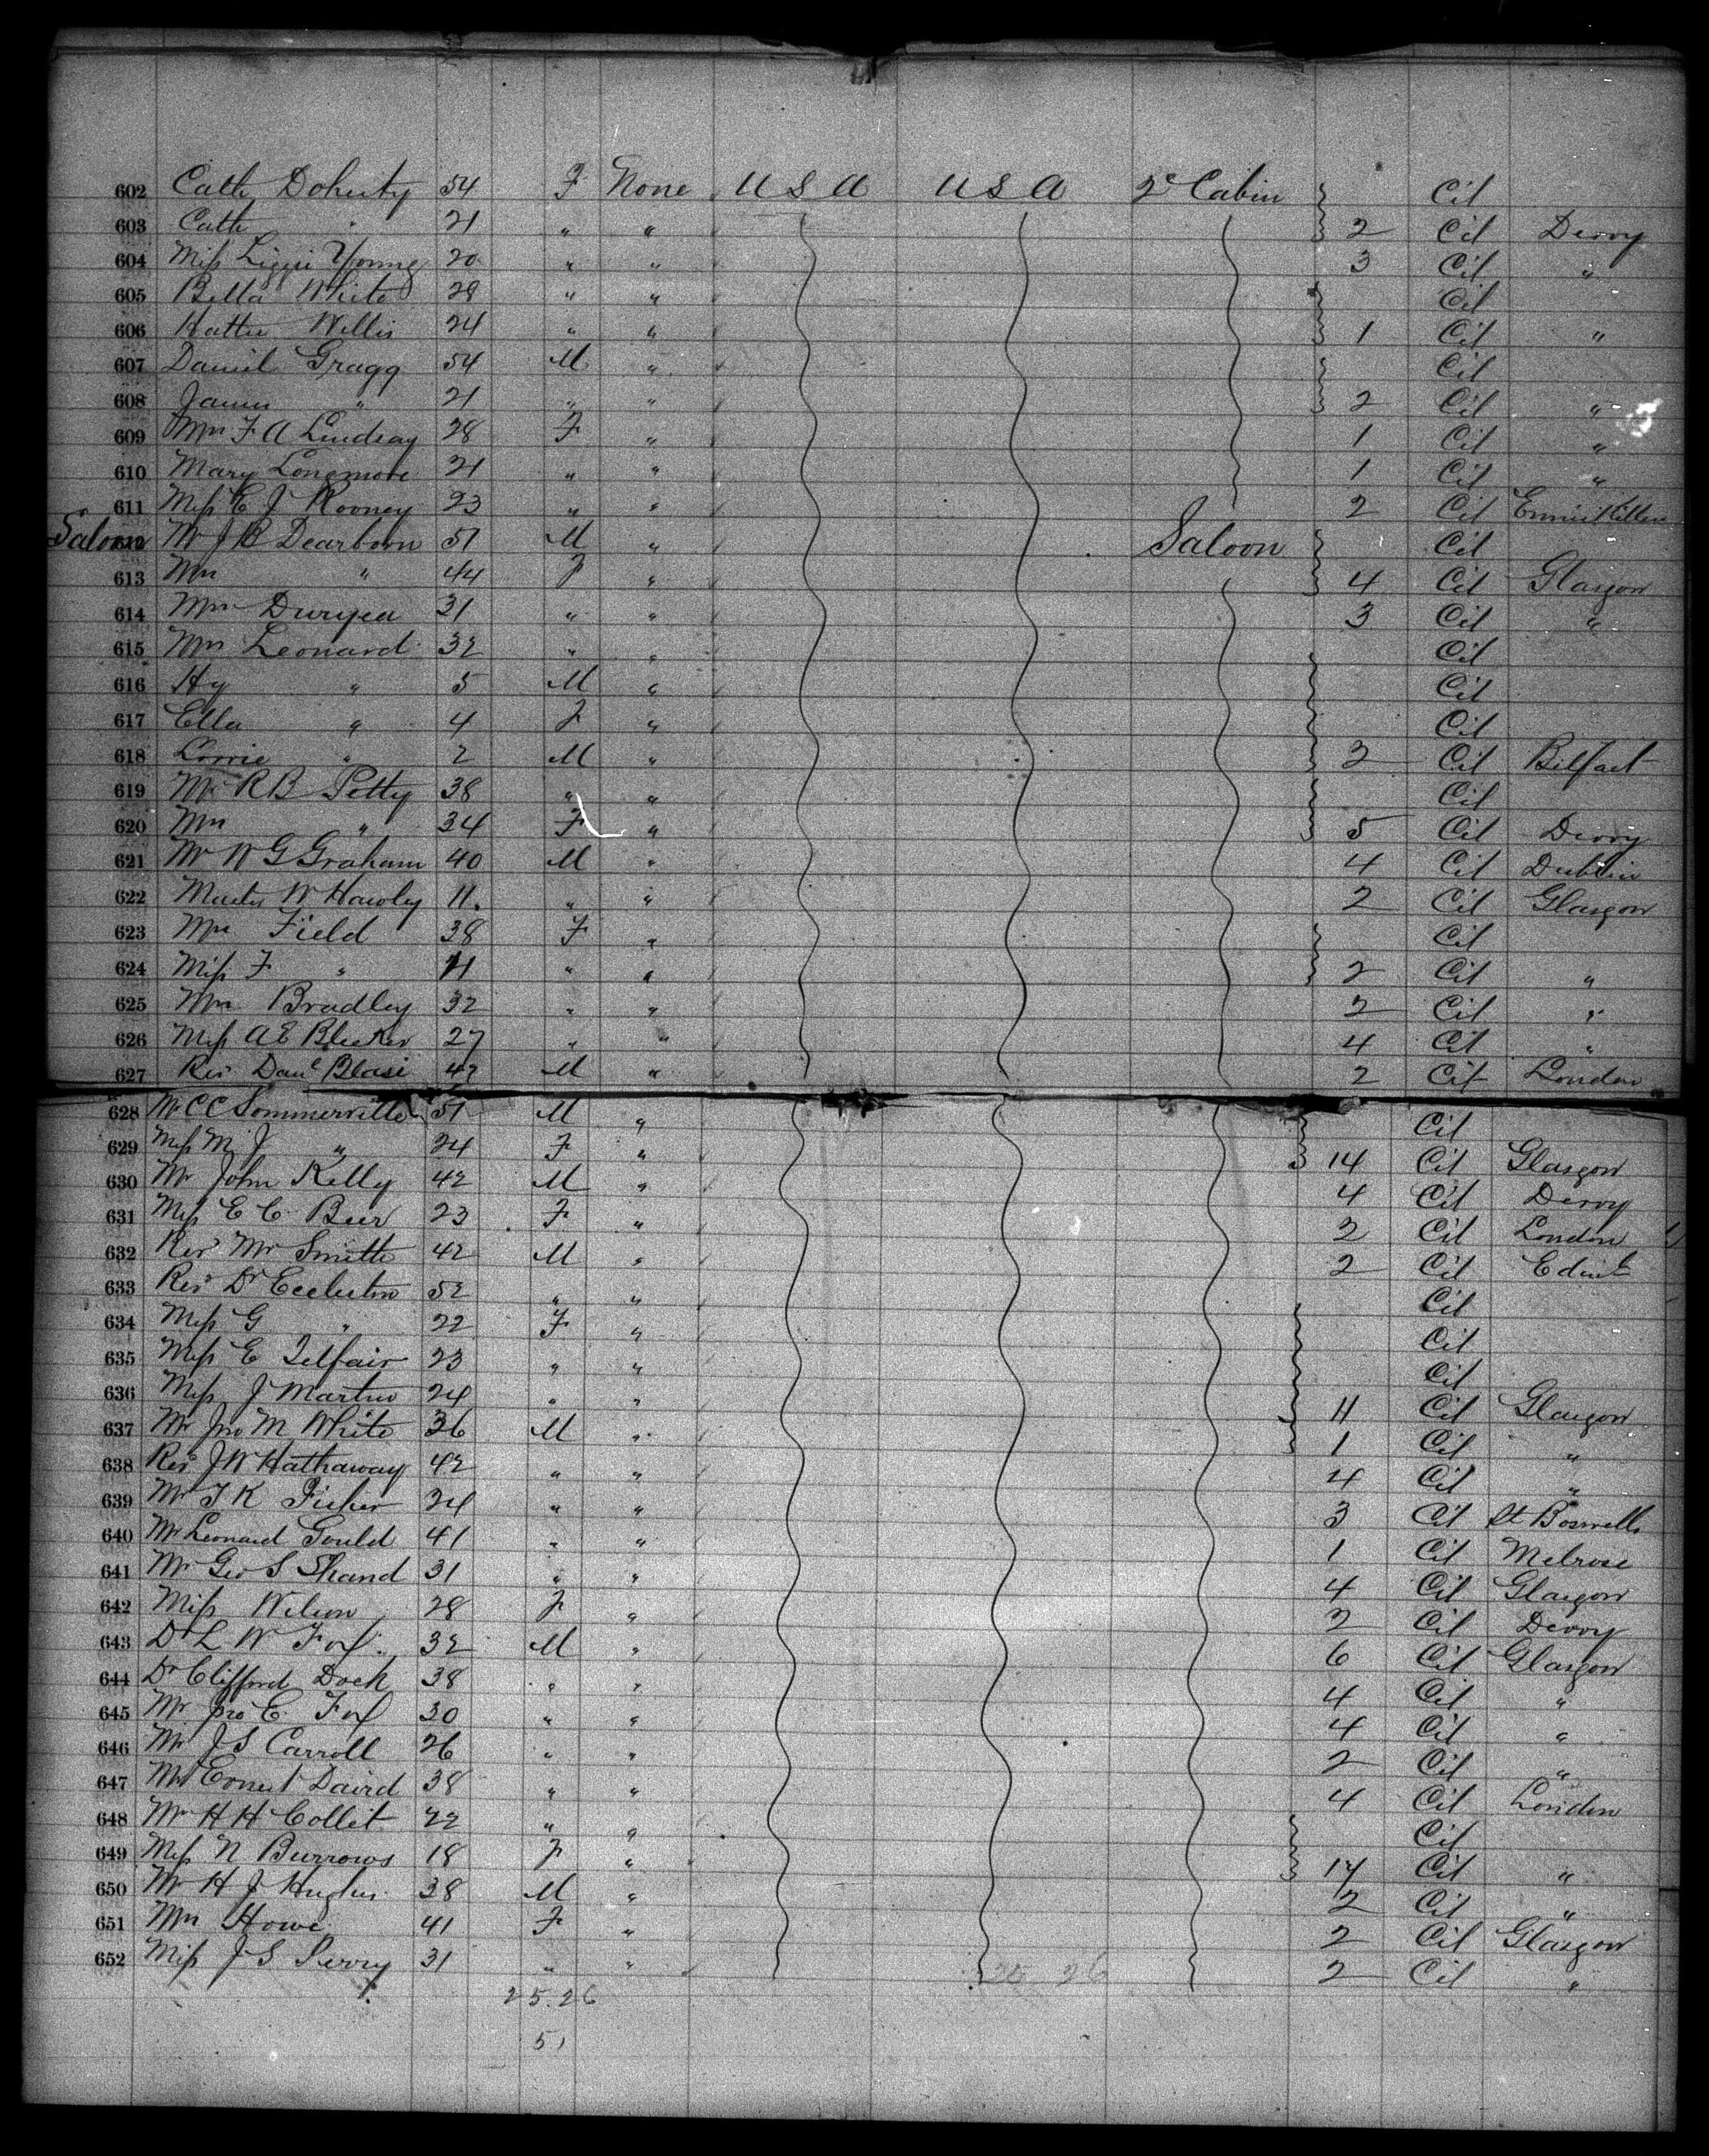 602 Cath Doherty 54 F None U S A U S A 2c Cabin Cit
603 Cath " 21 " " 2 Cit Derry
604 Miss Lizzie Young 20 " " 3 Cit "
605 Bella White 29 " " Cit
606 Hattie Willis 24 " " 1 Cit "
607 Daniel Gragg 54 M " Cit
608 James " 21 " " 2 Cit "
609 Mrs F A Lindsay 28 F " 1 Cit "
610 Mary Longmore 21 " " 1 Cit "
611 Miss E J Rooney 23 " " 2 Cit Enniskillen
Saloon 612 Mr J B Dearborn 51 M " Saloon Cit
613 Mrs " 44 F " 4 Cit Glasgow
614 Mrs Duryea 31 " " 3 Cit "
615 Mrs Leonard 32 " " Cit
616 Hy " 5 M " Cit
617 Ella " 4 F " Cit
618 " 2 M " Cit Belfast
619 Mr R B Petty 38 " " Cit
620 Mrs " 34 F " 5 Cit Derry
621 Mr W G Graham 40 M " 4 Cit Dublin
622 Master W Hawley 11 " " 2 Cit Glasgow
623 Mrs Field 38 F " Cit
624 Miss F " " " 2 Cit "
625 Mrs Bradley 32 " " 2 Cit "
626 Miss A E Bleeker 27 " " 4 Cit "
627 Rev Danl Blasi M " 2 Cit London
628 Mr C C Sommerville 51 M " Cit
629 Miss M J " 24 F " 14 Cit Glasgow
630 Mr John Kelly 42 M " 4 Cit Derry
631 Miss E C Beer 23 F " 2 Cit London
632 Rev Mr Smith 42 M " 2 Cit Edinb
633 Rev Dr Eccleston 52 " " Cit
634 Miss G " 22 F " Cit
635 Miss E Telfair 23 " " Cit
636 Miss J Martin 24 " " 11 Cit Glasgow
637 Mr Jno M White 36 M " 1 Cit "
638 Rev J W Hathaway 42 " " 4 Cit "
639 Mr T K 24 " " 3 Cit St Boswells
640 Mr Leonard Gould 41 " " 1 Cit Melrose
641 Mr Geo S Shand 31 " " 4 Cit Glasgow
642 Miss Wilson 28 F " 2 Cit Derry
643 Dr L W Fox 32 M " 6 Cit Glasgow
644 Dr Clifford Dock 38 " " 4 Cit "
645 Mr Jno E. Fox 30 " " 4 Cit "
646 Mr J S Carroll 26 " " 2 Cit "
647 Mr Ernest Daird 38 " " 4 Cit London
648 Mr H H Collet 22 " " Cit
649 Miss N Burrows 18 F " 17 Cit "
650 Mr H J Hughes 38 M " 2 Cit "
651 Mrs Howe 41 F " 2 Cit Glasgow
652 Miss J S Perry 31 " " 2 Cit "
25.26
51